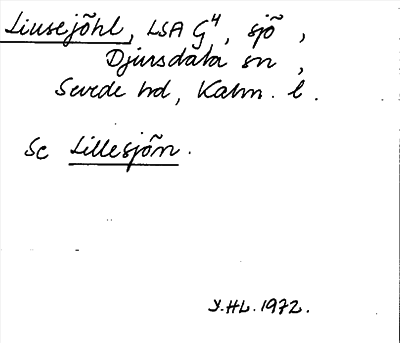 Liusejõhl, LSA G⁴, sjõ,
Djursdala sn,
Sevede hd, Kalm. l.
Se Lillesjõn.
Y.HL.1972.